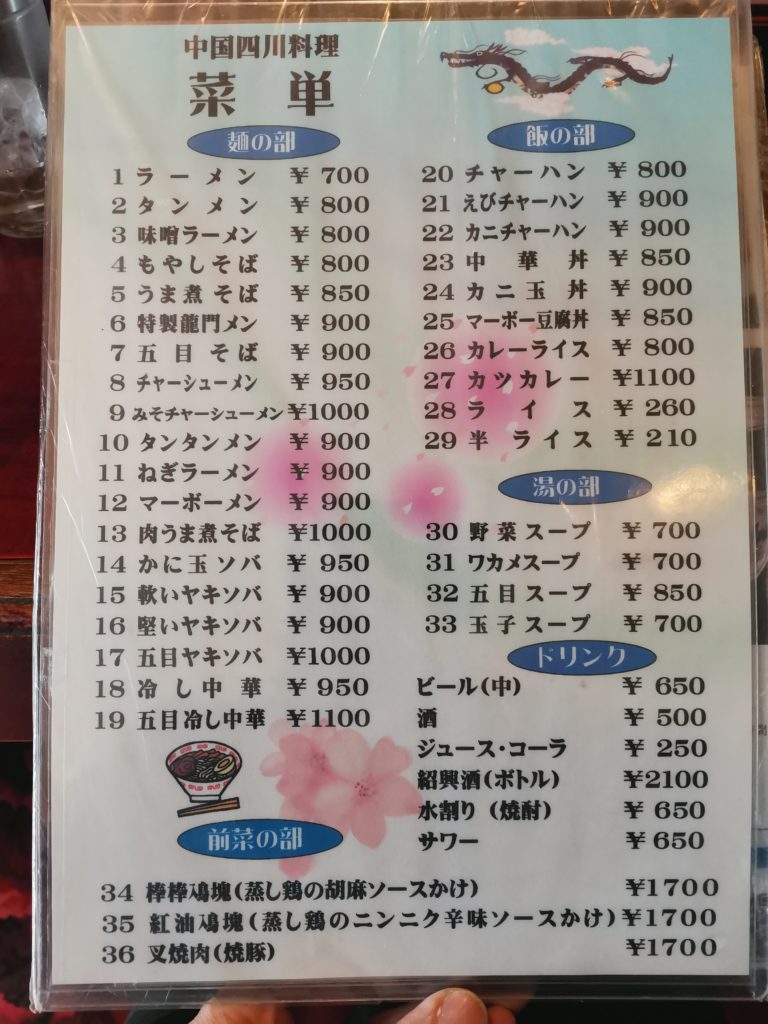 中国四川料理
菜単
麺の部
1 ラーメン ¥ 700
2 タンメン ¥ 800
3 味噌ラーメン ¥ 800
4 もやしそば ¥ 800
5 うま煮そば ¥ 850
6 特製龍門メン ¥ 900
7 五目そば ¥ 900
8 チャーシューメン ¥ 950
9 みそチャーシューメン ¥1000
10 タンタンメン ¥ 900
11 ねぎラーメン ¥ 900
12 マーボーメン ¥ 900
13 肉うま煮そば ¥1000
14 かに玉ソバ ¥ 950
15 軟いヤキソバ ¥ 900
16 堅いヤキソバ ¥ 900
17 五目ヤキソバ ¥1000
18 冷し中華 ¥ 950
19 五目冷し中華 ¥1100
飯の部
20 チャーハン ¥ 800
21 えびチャーハン ¥ 900
22 カニチャーハン ¥ 900
23 中華丼 ¥ 850
24 カニ玉丼 ¥ 900
25 マーボー豆腐丼 ¥ 850
26 カレーライス ¥ 800
27 カツカレー ¥1100
28 ライス ¥ 260
29 半ライス ¥ 210
湯の部
30 野菜スープ ¥ 700
31 ワカメスープ ¥ 700
32 五目スープ ¥ 850
33 玉子スープ ¥ 700
ドリンク
ビール(中) ¥ 650
酒 ¥ 500
ジュース・コーラ ¥ 250
紹興酒(ボトル) ¥2100
水割り(焼酎) ¥ 650
サワー ¥ 650
前菜の部
34 棒棒鳮塊(蒸し鶏の胡麻ソースかけ) ¥1700
35 紅油鳮塊(蒸し鶏のニンニク辛味ソースかけ) ¥1700
36 叉焼肉(焼豚) ¥1700